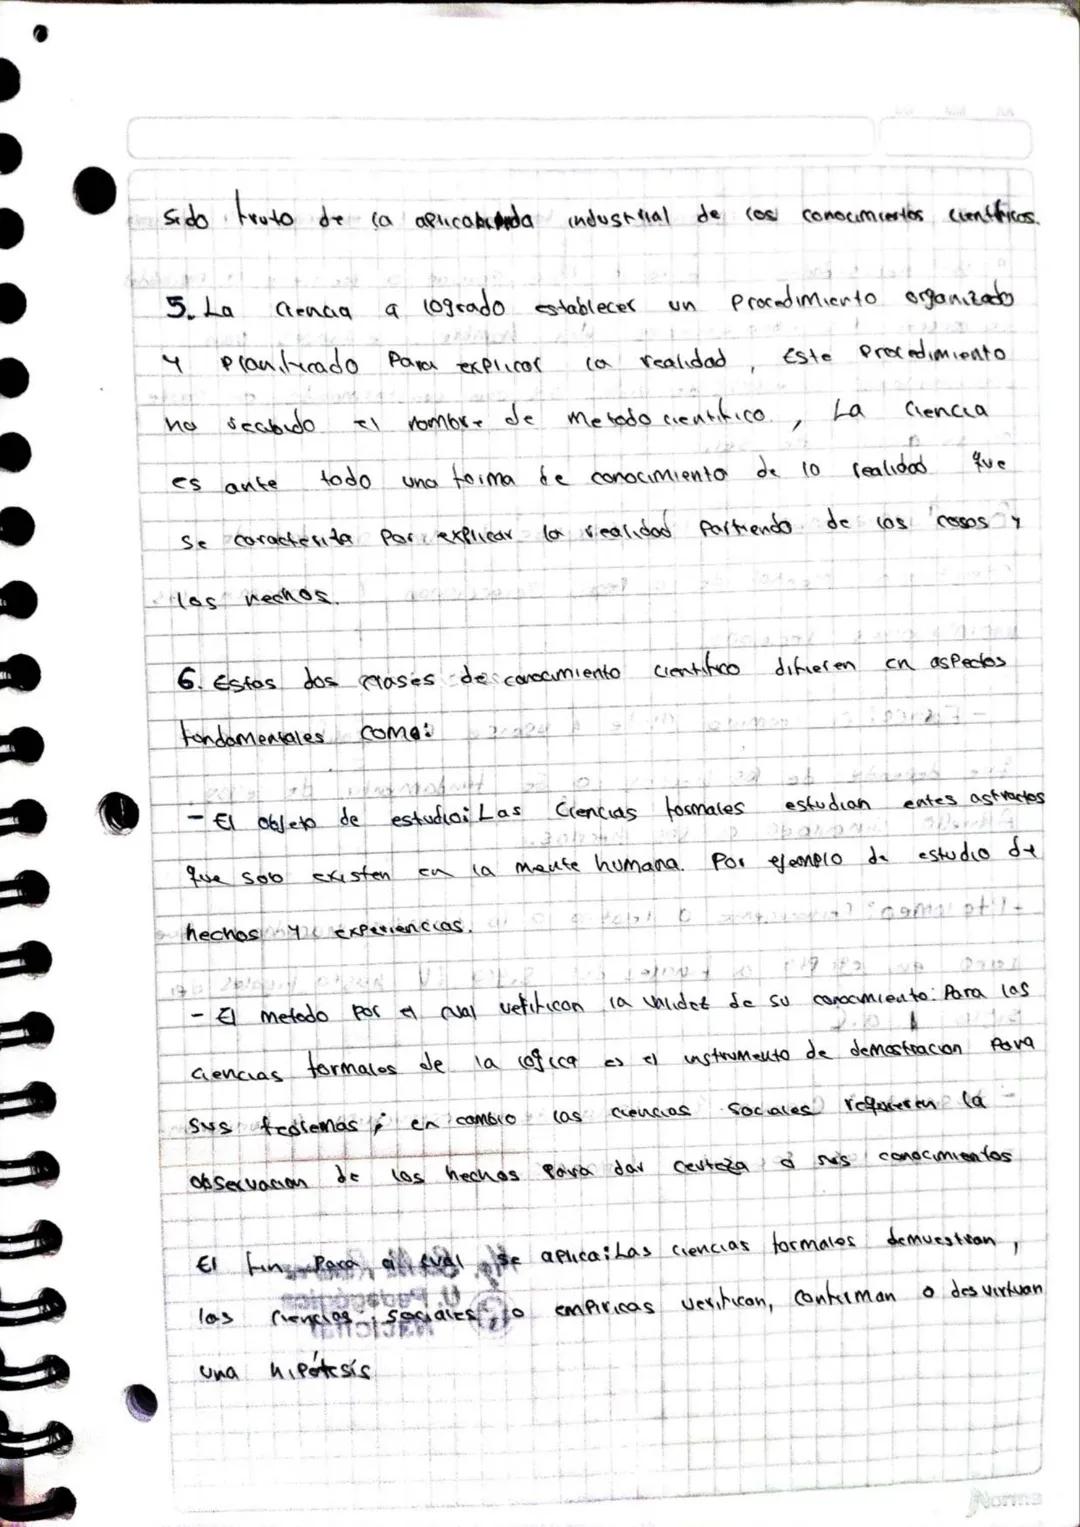 sido fruto de la industrial de los conocimientos cientificos.
5. La ciencia a logrado establecer un procedimiento organizado
y planificado Para explicar la realidad, Este Procedimiento
ha recibido el nombre de metodo cientifico, La ciencia
es ante todo una forma de conocimiento de la realidad que
se caracteriza por explicar la realidad partiendo de las cosas y
los hechos.
6. Estas dos clases de conocimiento cientifico difieren en aspectos
fundamentales como:
- El objeto de estudio: Las Ciencias formales estudian entes astractos
que solo existen en la mente humana. Por ejemplo de estudio de
hechos y experiencias.
- El metodo por el cual verifican la validez de su conocimiento: Para las
ciencias formales de la logica es el instrumento de demostracion Para
sus teoremas; en cambio las ciencias sociales requieren la
observacion de los hechos para dar certeza a sus conocimientos
El fin Para el cual se aplica: Las ciencias formales demuestran,
las ciencias sociales o empiricas verifican, confirman o desvirtuan
una hipótesis
Norma